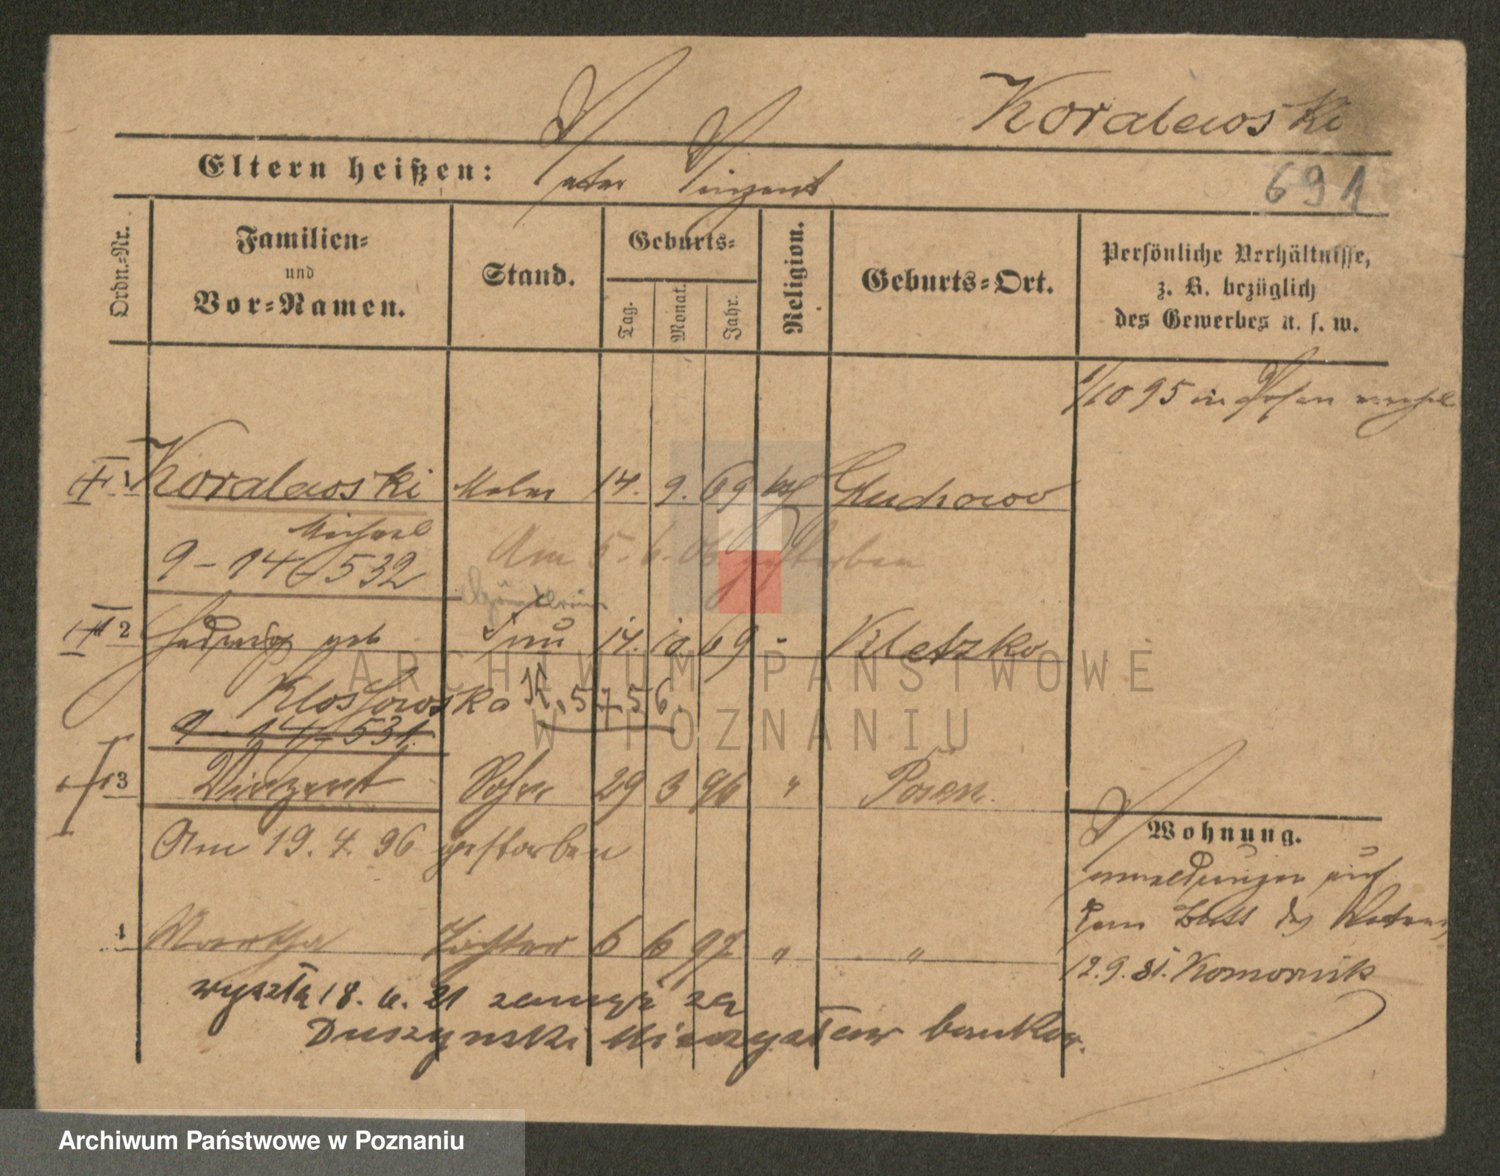 Koralewski
Eltern heißen: Vater Vinzent
691
Ordn.-Nr.
Familien-
und
Vor-Namen.
Stand.
Geburts-
Tag.
Monat.
Jahr.
Religion.
Geburts-Ort.
Persönliche Verhältnisse,
z. B. bezüglich
des Gewerbes u. s. w.
1/10 95 in Posen
1 Koralewski Maler 14. 9. 69 kath Gluchowo
Michael
9-14-532
Am 5.6.06 gestorben
2 Hedwig geb Frau 17. 10 69 " Kletzko
Klossowska K. 5756.
9-14-531
3 Vinzent Sohn 29 3 96 " Posen.
Am 19. 4. 96 gestorben
Wohnung.
auf
dem Blatt des Vaters
12.9.81. Komornik
Martha Tochter 6 6 97 " "
wyszła 18. 6. 21 zamąż za
Duszynski Mieczysław bankow.
ARCHIWUM PAŃSTWOWE
W POZNANIU
Archiwum Państwowe w Poznaniu